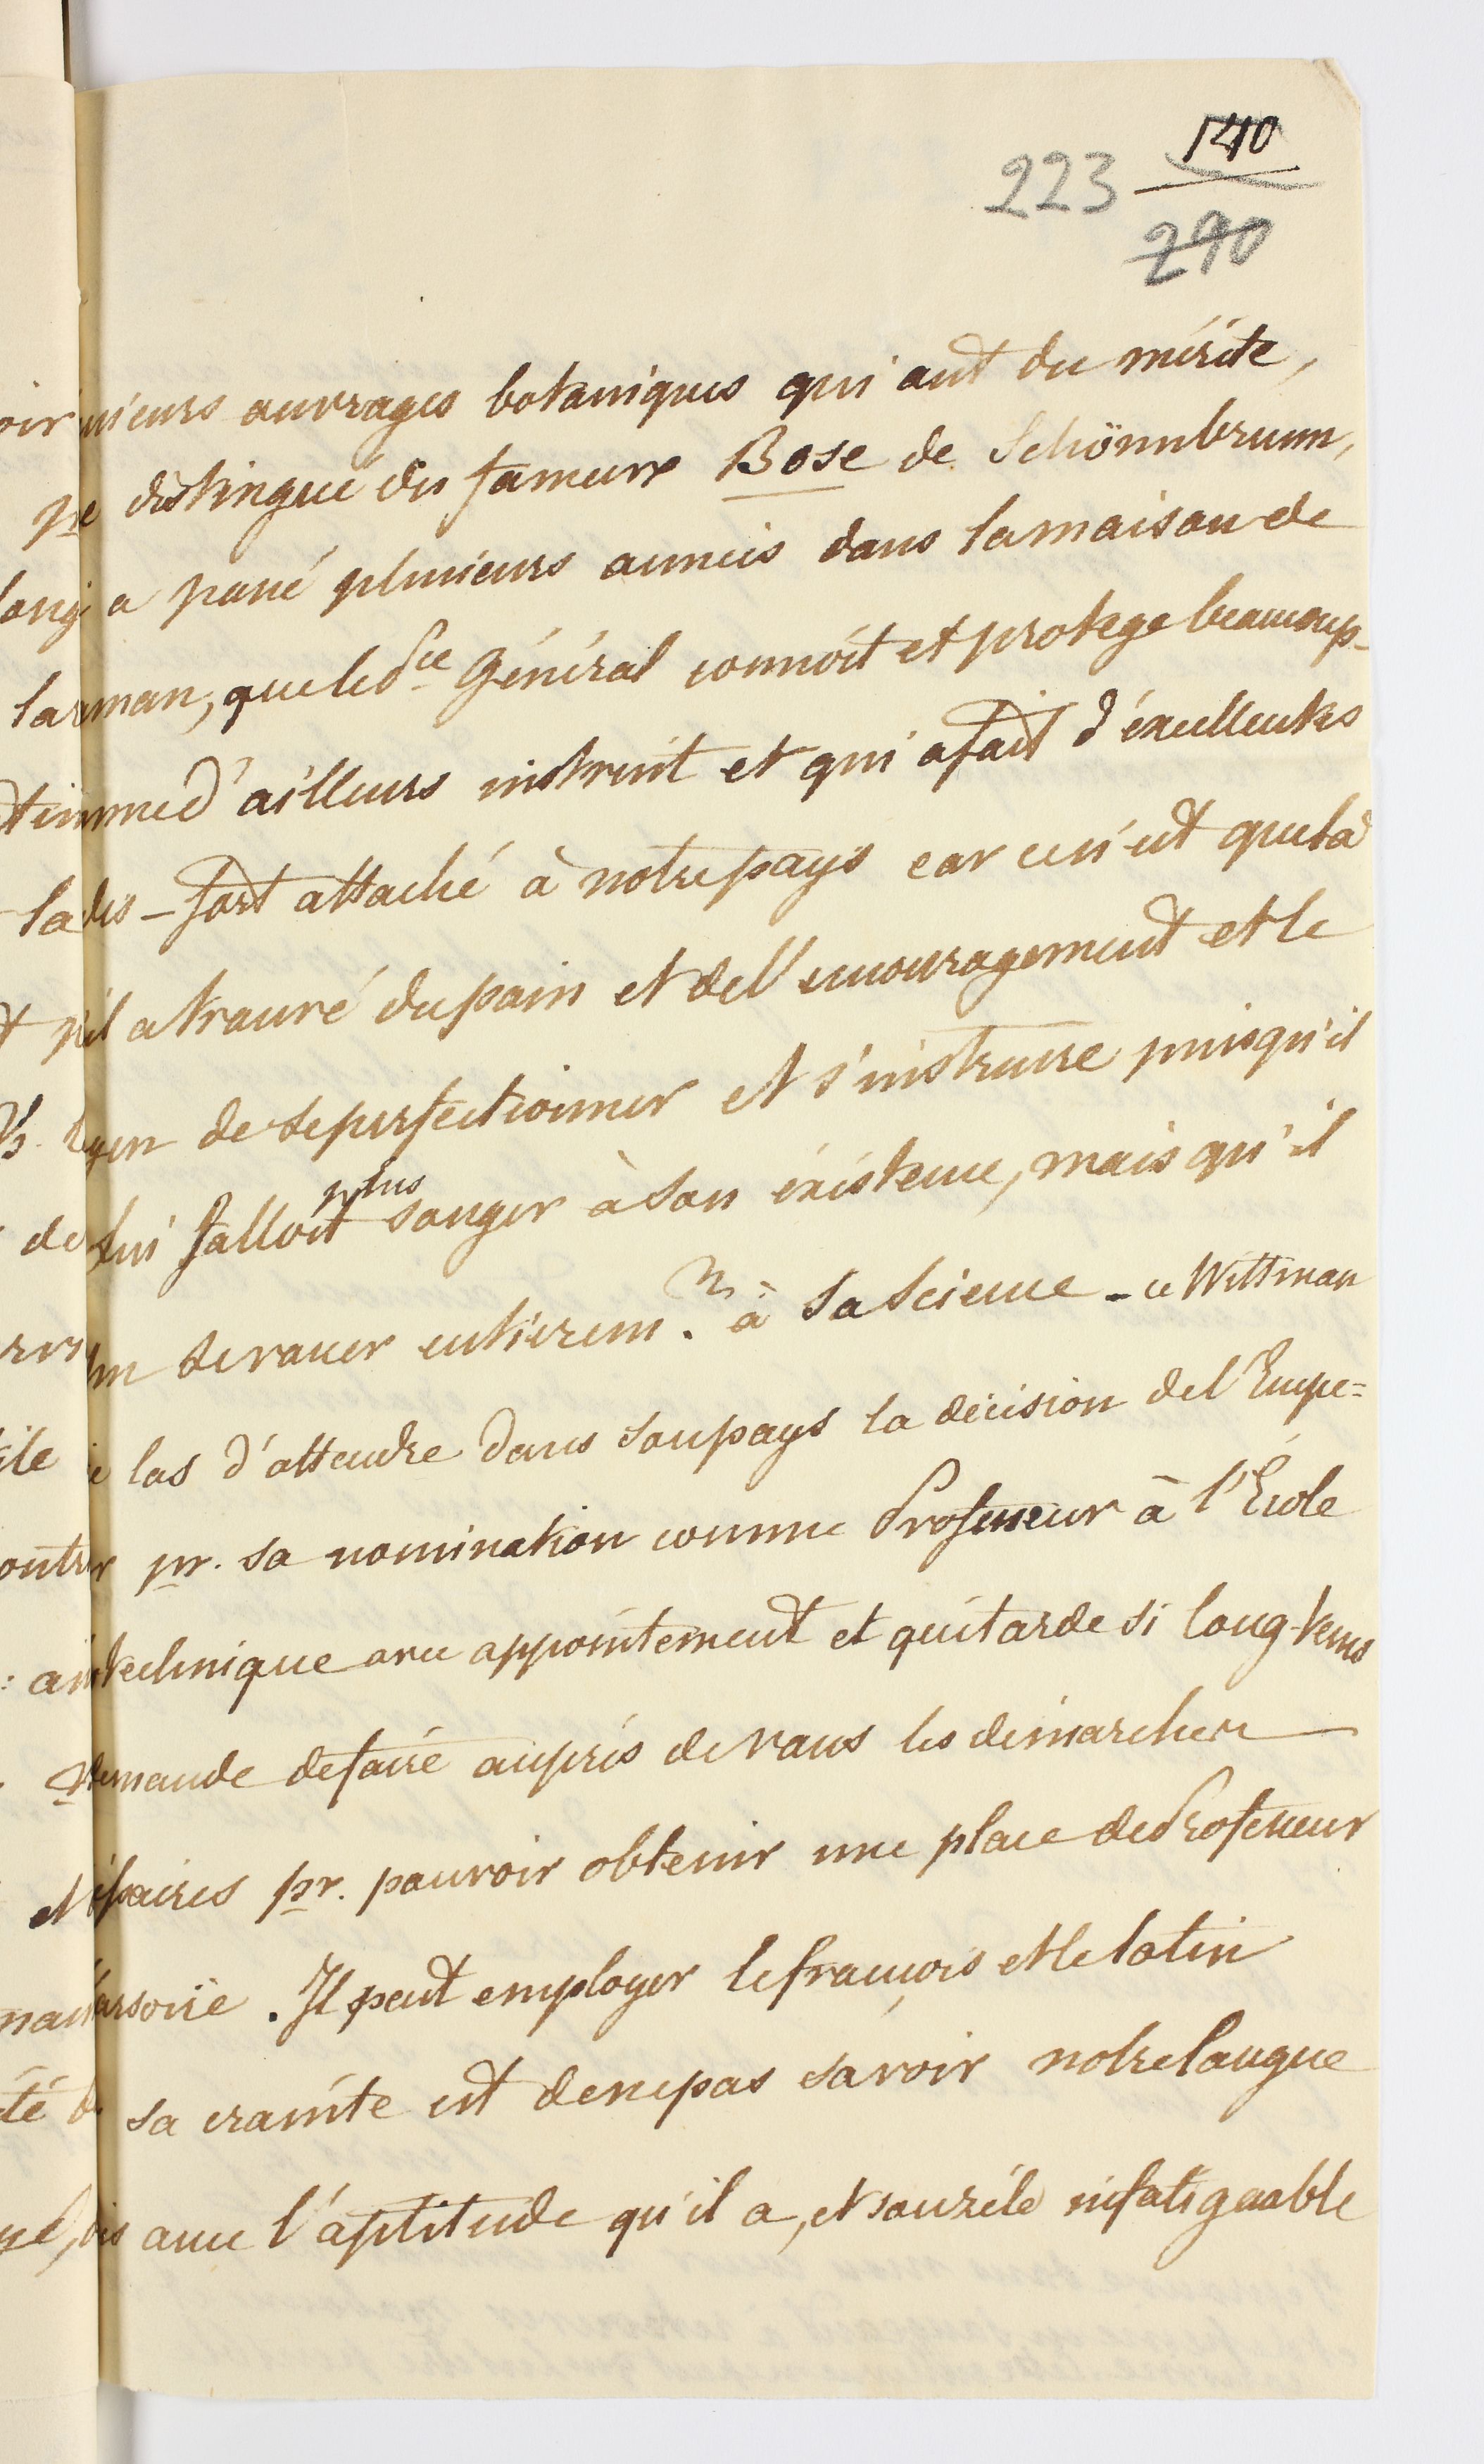 140
223
290
nieurs ouvrages botaniques qui ont du mérite,
distingué du fameux Bose de Schönnbrunn,
a passé plusieurs années dans la maison de
man, que led.ce Général connoit et protege beaucoup-
d'ailleurs instruit et qui a fait d'éxcellentes
des - fort attaché à notre pays car ce n'est que là
il a trouvé du pain et de l'encouragement et le
yen de se perfectionner et s'instruire puisqu'il
lui falloit plus songer à son éxistence, mais qu'il
se vouer entierem.t à sa science - ce Wittman
las d'attendre dans son pays la décision de l'Empe=
r pr. sa nomination comme Professeur à l'École
technique avec appointement et qui tarde si long-tems
demande de faire auprès de vous les démarches
pr. pouvoir obtenir une place de Professeur
arsovie. Il peut employer le françois et le latin
sa crainte est de ne pas savoir notre langue
is avec l'aptitude qu'il a, et son zéle infatigaable